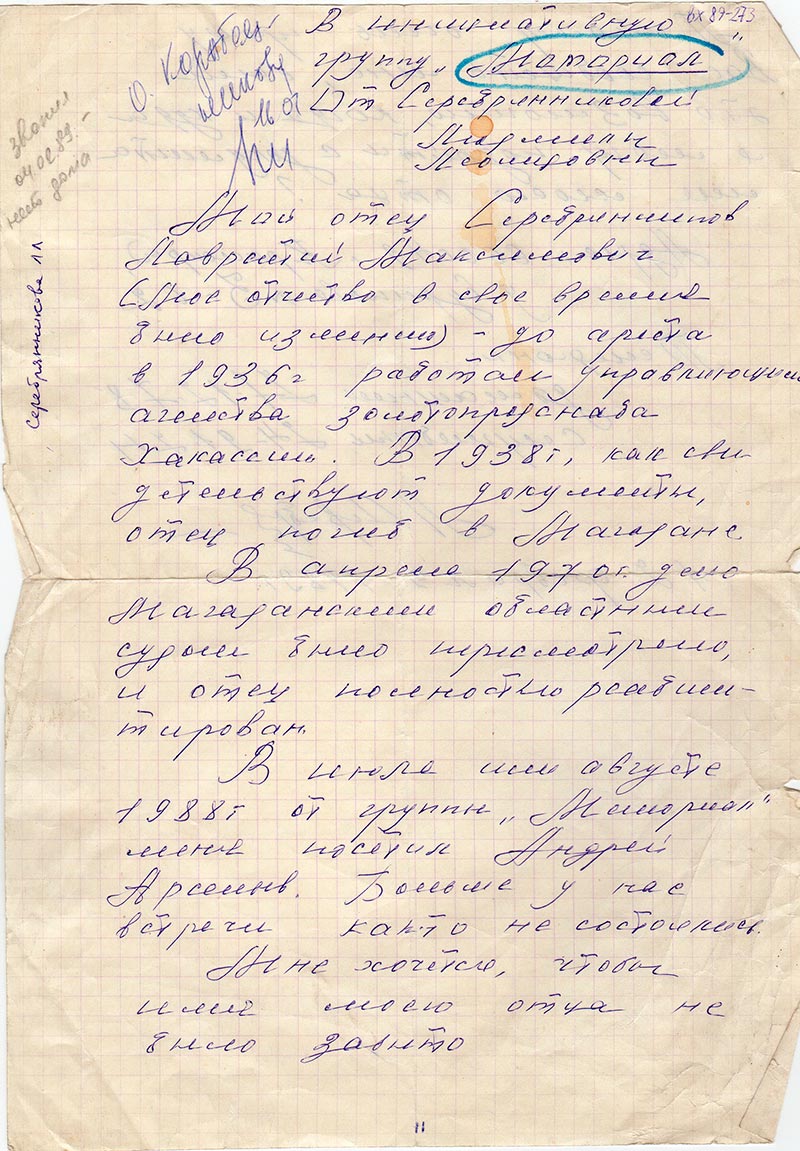 вх 89-273
В инициативную
группу „Мемориал"
От Серебрянниковой
Людмилы
Леонидовны
О. Коробей-
никову
16 01
звонил
04.02.89.-
нет дома
Серебрянникова ЛЛ
Мой отец Серебрянников
Лаврентий Максимович
(Мое отчество в свое время
было изменено) - до ареста
в 1936г работал управляющим
агенства золотопродснаба
Хакассии. В 1938г, как сви
детельствуют документы,
отец погиб в Магадане.
В апреле 1970г. дело
Магаданским областным
судом было пересмотрено,
и отец полностью реабили-
тирован.
В июле или августе
1988г от группы „Мемориал"
меня посетил Андрей
Арсеньев. Больше у нас
встречи как-то не состоялись.
Мне хочется, чтобы
имя моего отца не
было забыто
11